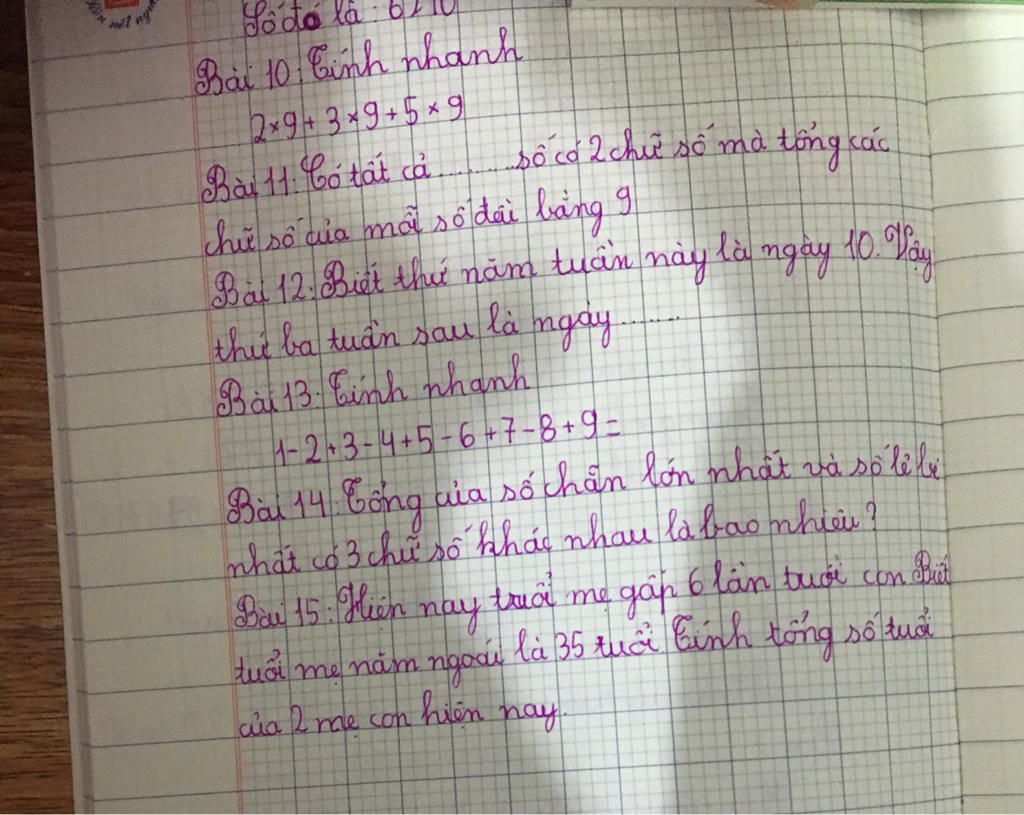 Số đó là: 6210
Bài 10: Tính nhanh
2×9+3×9+5×9
Bài 11: Có tất cả ........ số có 2 chữ số mà tổng các
chữ số của mỗi số đài bằng 9
Bài 12: Biết thứ năm tuần này là ngày 10. Vậy
thứ ba tuần sau là ngày .......
Bài 13: Tính nhanh
1-2+3-4+5-6+7-8+9=
Bài 14: Tổng của số chẵn lớn nhất và số lẻ bé
nhất có 3 chữ số khác nhau là bao nhiêu?
Bài 15: Hiện nay tuổi mẹ gấp 6 lần tuổi con Biết
tuổi mẹ năm ngoái là 35 tuổi Tính tổng số tuổi
của 2 mẹ con hiện nay.